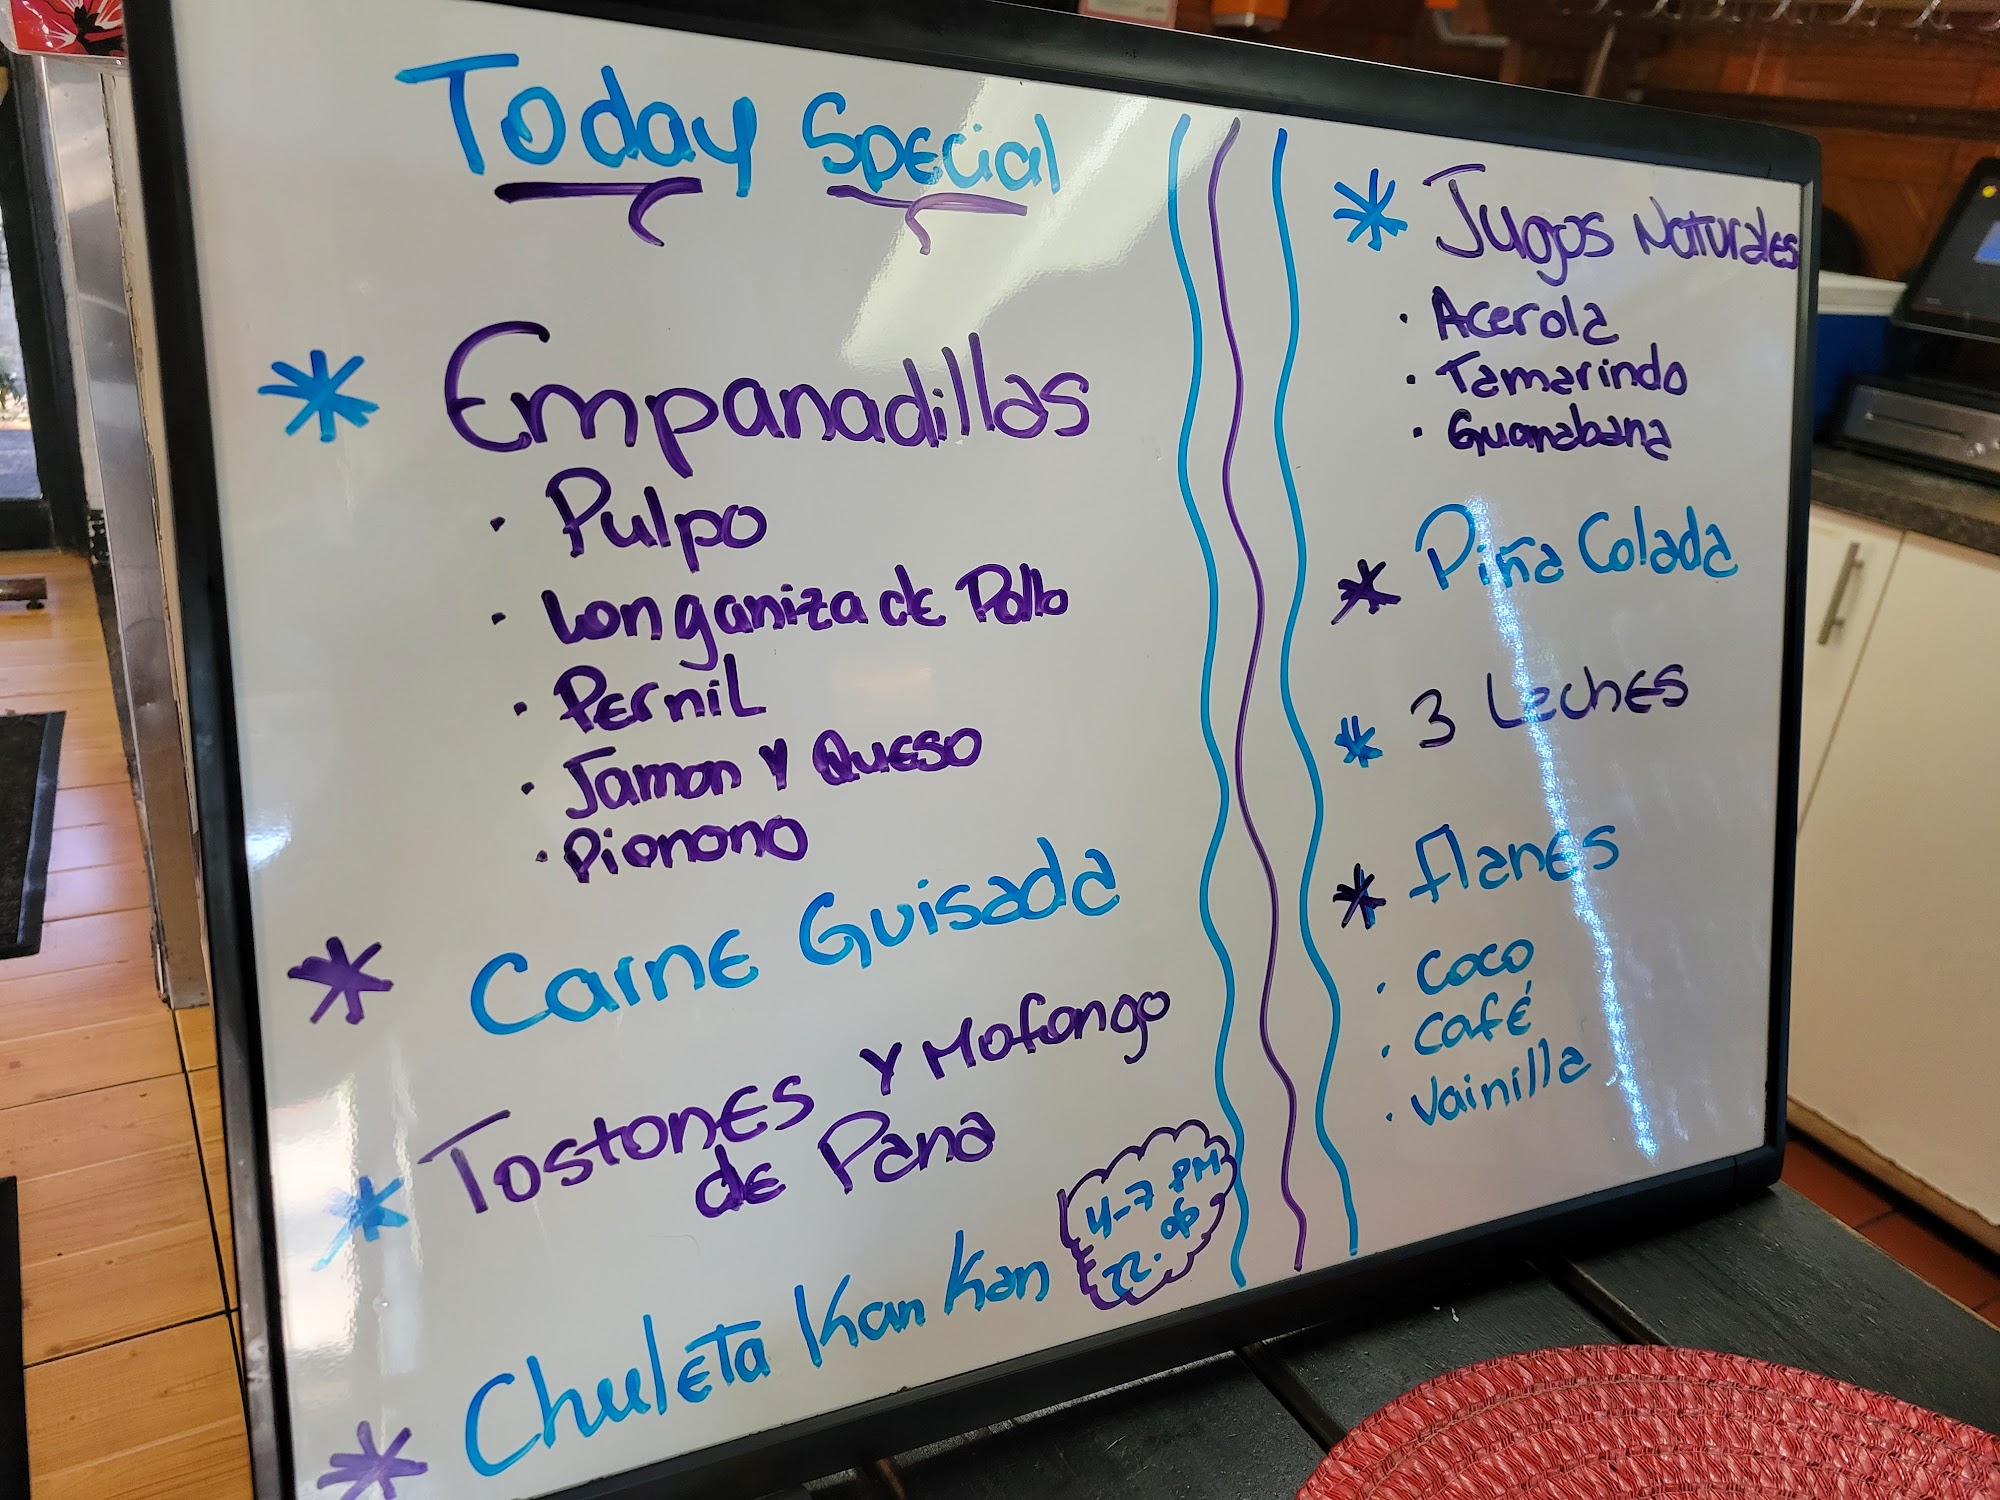 Today Special
* Empanadillas
· Pulpo
· Longaniza de Pollo
· Pernil
· Jamon y Queso
· Pionono
* Carne Guisada
* Tostones y Mofongo
de Pana
* Chuleta Kan Kan
4-7 PM
* Jugos Naturales
· Acerola
· Tamarindo
· Guanabana
* Piña Colada
* 3 Leches
* flanes
· coco
· café
· Vainilla